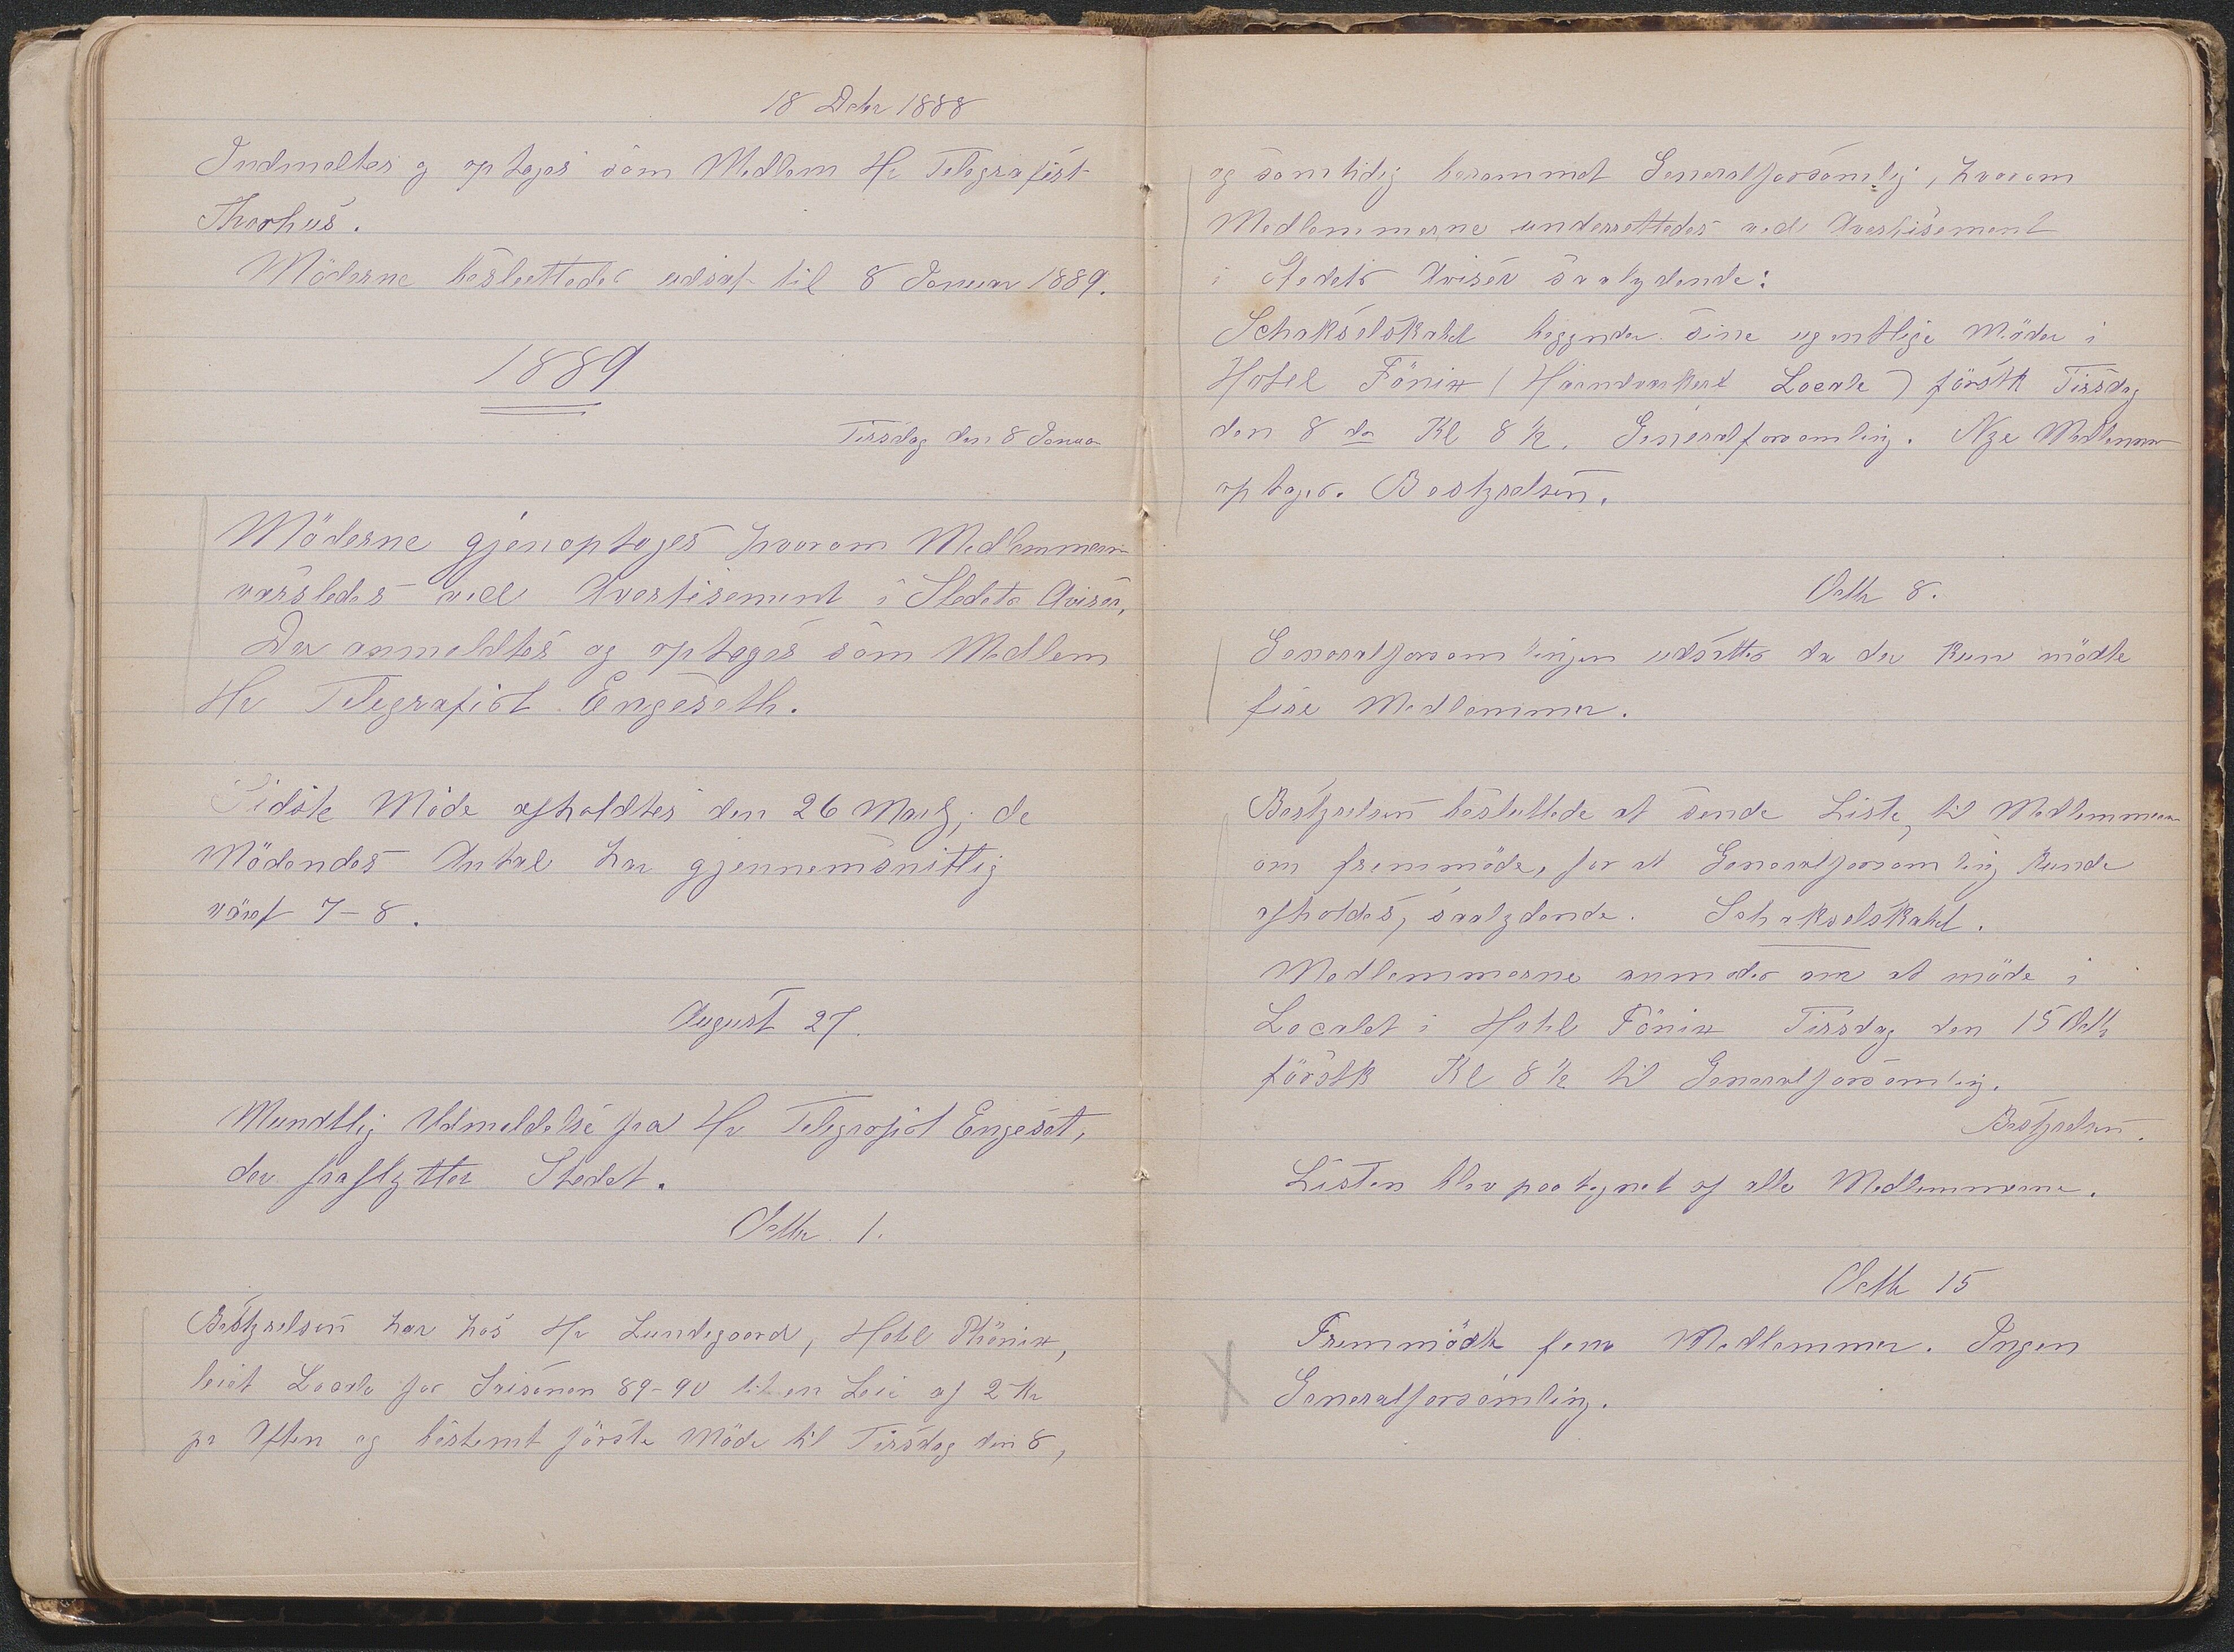 18 Debr 1888
Indmeltes og optoges som Medlem Hr Telegrafist
Thorhus.
Möderne besluttedes udsat til 8 Januar 1889.
1889
Tirsdag den 8 Januar
Möderne gjenoptoges hvorom Medlemmerne
varsledes ved Avertisement i Stedets Aviser.
Der anmeldtes og optoges som Medlem
Hr Telegrafist Engeseth.
Sidste Möde afholdtes den 26 Marts; de
Mödendes Antal har gjennemsnitlig
väret 7-8.
August 27.
Mundtlig Udmeldelse fra Hr Telegrafist Engeset,
der fraflytter Stedet.
Octbr 1.
Bestyrelsen har hos Hr Lundegaard, Hotel Phönix,
leiet Locale for Saisonen 89-90 til en Leie af 2 Kr
pr Aften og bestemt förste Möde til Tirsdag den 8,
og samtidig berammet Generalforsamlig, hvorom
Medlemmerne underrettedes ved Avertisement
i Stedets Aviser saalydende:
Schakselskabet begynder sine ugentlige Möder i
Hotel Fönix (Haandværkers Locale) förstk Tirsdag
den 8 ds Kl 8 1/2. Generalforsamling. Nye Medlemmer
optages. Bestyrelsen.
Octbr 8.
Generalforsamlingen udsättes da der kun mödte
fire Medlemmer.
Bestyrelsen besluttede at sende Liste til Medlemmerne
om fremmöde, for at Generalforsamling kunde
afholdes, saalydende. Schakselskabet.
Medlemmerne anmodes om at möde i
Localet i Hotel Fönix Tirsdag den 15 Octbr
förstk Kl 8 1/2 til Generalforsamling.
Bestyrelsen.
Listen blev paategnet af alle Medlemmerne.
Octbr 15
Fremmödte fem Medlemmer. Ingen
Generalforsamling.